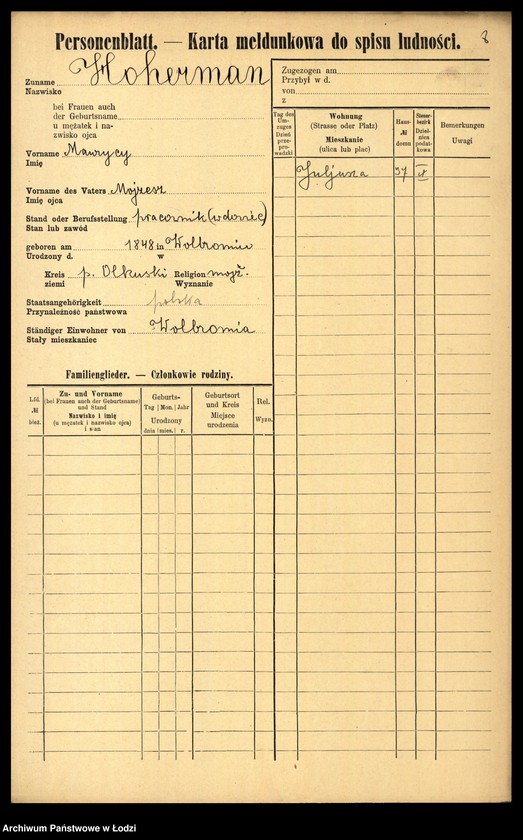 Personenblatt. — Karta meldunkowa do spisu ludności.
8
Zuname Hoherman
Nazwisko
bei Frauen auch
der Geburtsname
u mężatek i na-
zwisko ojca
Vorname Mawrycy
Imię
Vorname des Vaters Mojżesz
Imię ojca
Stand oder Berufsstellung pracownik (wdowiec)
Stan lub zawód
geboren am 1848 in Wolbromiu
Urodzony d. w
Kreis p. Olkuski Religion mojż.
ziemi Wyznanie
Staatsangehörigkeit polska
Przynależność państwowa
Ständiger Einwohner von Wolbromia
Stały mieszkaniec
Familienglieder. — Członkowie rodziny.
Lfd.
№
bież.
Zu- und Vorname
(bei Frauen auch der Geburtsname)
und Stand
Nazwisko i imię
(u mężatek i nazwisko ojca)
i stan
Geburts-
Tag Mon. Jahr
Urodzony
dnia mies. r.
Geburtsort
und Kreis
Miejsce
urodzenia
Rel.
Wyzn.
Zugezogen am
Przybył w d.
von
z
Tag des
Um-
zuges
Dzień
prze-
pro-
wadzki
Wohnung
(Strasse oder Platz)
Mieszkanie
(ulica lub plac)
Haus-
№
domu
Steuer-
bezirk
Dziel-
nica
podat-
kowa
Bemerkungen
Uwagi
Juljusza 37
Archiwum Państwowe w Łodzi